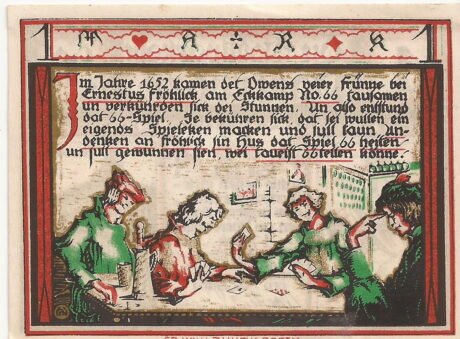 1 M A R K 1
Im Jahre 1652 kamen det Owens veier Frünne bei
Ernestus Fröhlick am Eckkamp No. 66 tausamen
un verkürden sick dei Stunnen. Un also entstund
dat 66-Spiel. Se beküren sick, dat sei wullen ein
eigends Spieleken macken und sull taun An-
denken an fröhlick sin Hus dat Spiel 66 heiten
un sull gewunnen sien, wei tauerst 66 tellen könne.